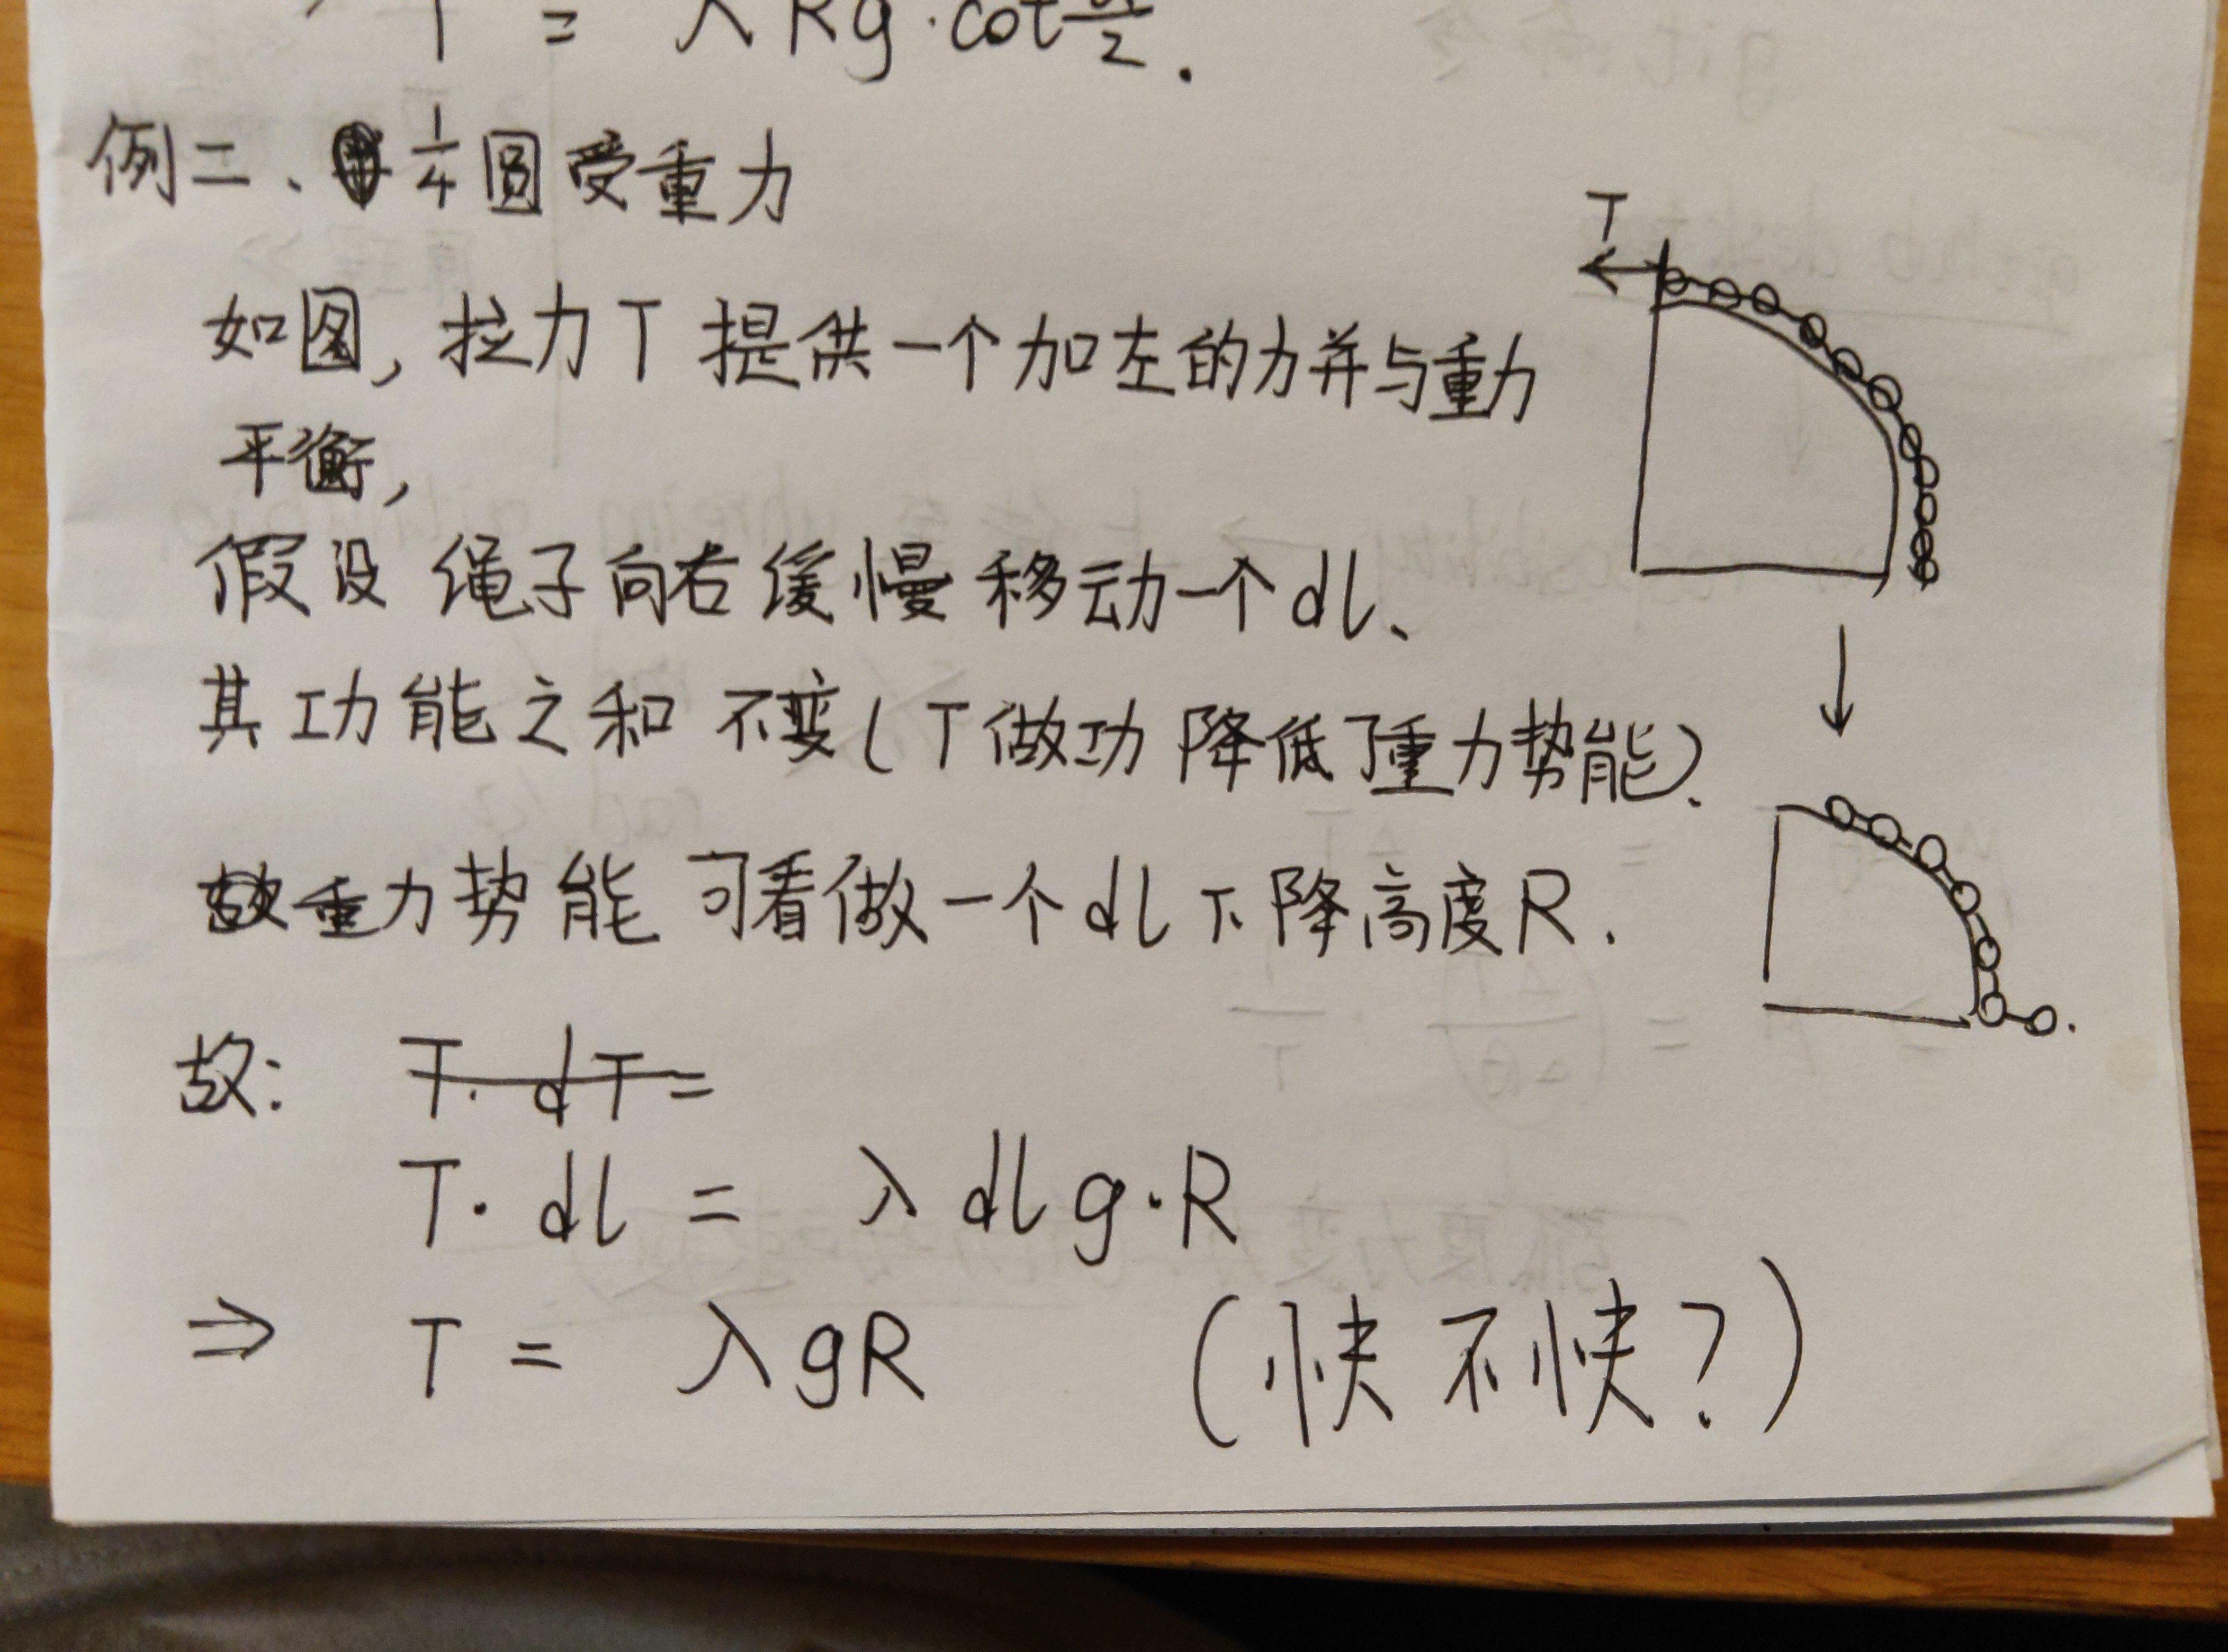 T = λRg·cot α/2.
例二、1/4圆受重力
T
如图,拉力T提供一个加左的力并与重力
平衡,
假设绳子向右缓慢移动一个dl、
其功能之和不变(T做功降低了重力势能).
故重力势能可看做一个dl下降高度R.
故: T·dT=
T·dl = λdlg·R
⇒ T = λgR (快不快?)